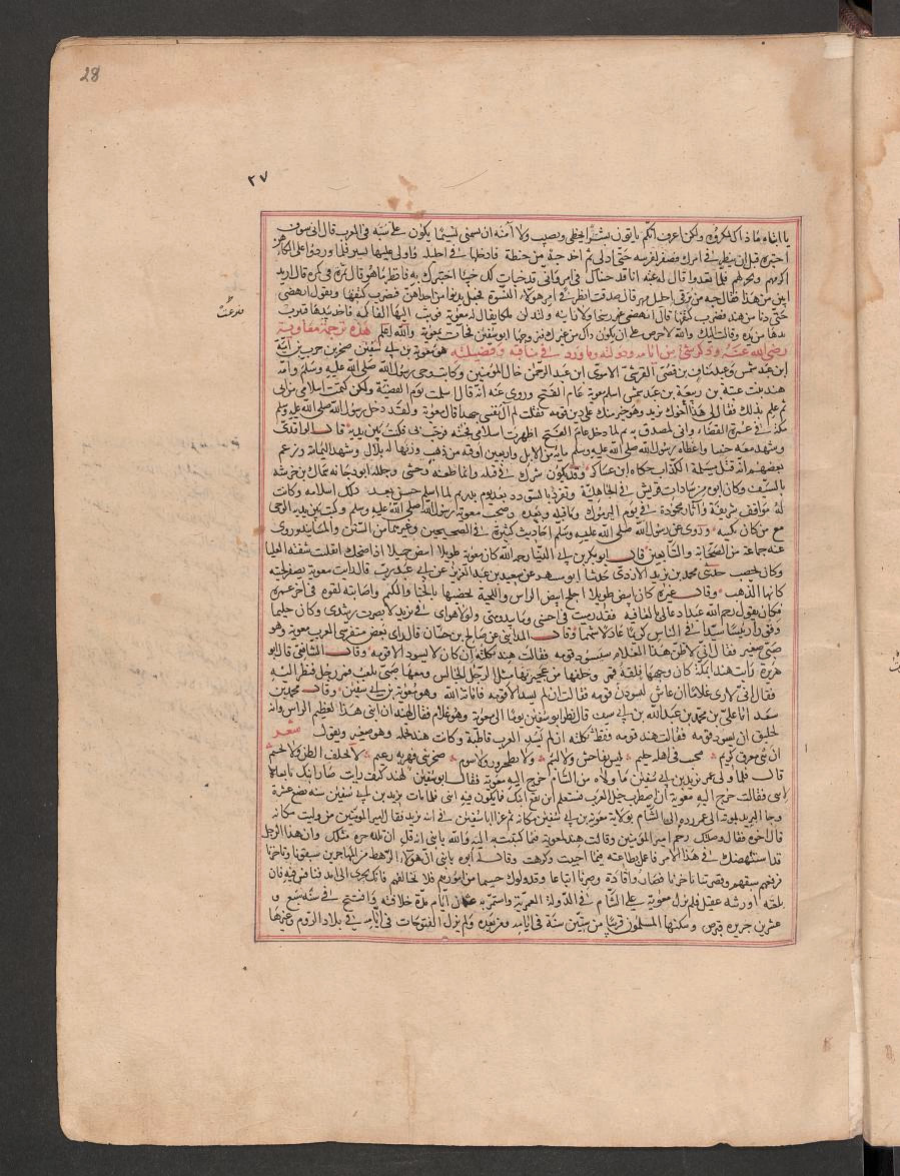 28
٢٧
يا ابتاه ما ذاك لمكروه ولكن اعرف انكم تاتون بشرا يخطئ ويصيب ولا آمنه ان يسمني بسيما يكون علي سبة في العرب قال اني سوف
اختبره قبل ان ينظر في امرك فصفر لفرسه حتى ادلى ثم اخذ حبة من حنطة فادخلها في احليله واوكى عليها بسير فلما وردوا على الكاهن
اكرمهم ونحر لهم فلما تغدوا قال له عتبة انا قد جئناك في امر واني قد خبأت لك خبيا اختبرك به فانظر ما هو قال ثمرة في كمرة قال اريد
ابين من هذا قال حبة من بر في احليل مهر قال صدقت انظر في امر هولاء النسوة فجعل يدنو من احداهن فضرب كتفها ويقول انهضي
حتى دنا من هند فضرب كتفها قال انهضي غير رسحا ولا زانية ولتلدن ملكا يقال له معوية فوثب اليها الفاكه فاخذ بيدها فنترت
يدها من يده وقالت اليك والله لاحرص على ان يكون ذاك من غيرك فتزوجها ابو سفين فجات بمعوية والله اعلم هذه ترجمة معاوية
رضي الله عنه وذكر شي من ايامه ودولته وما ورد في مناقبه وفضيلته هو معوية بن ابي سفين صخر بن حرب بن امية
ابن عبد شمس بن عبد مناف بن قصي القرشي الاموي ابن عبد الرحمن خال المؤمنين وكاتب وحي رسول الله صلى الله عليه وسلم وامه
هند بنت عتبة بن ربيعة بن عبد شمس اسلم معوية عام الفتح وروي عنه انه قال اسلمت يوم القضية ولكن كتمت اسلامي من ابي
ثم علم بذلك فقال لي هذا اخوك يزيد وهو خير منك على دين قومه فقلت لم آل نفسي جهدا قال معوية ولقد دخل رسول الله صلى الله عليه وسلم
مكة في عمرة القضاء واني لمصدق به ثم لما دخل عام الفتح اظهرت اسلامي فجئته فرحب بي وكتبت بين يديه قال الواقدي
وشهد معه حنينا واعطاه رسول الله صلى الله عليه وسلم ماية من الابل واربعين اوقية من ذهب وزنها له بلال وشهد اليمامة وزعم
بعضهم انه قتل مسيلمة الكذاب حكاه ابن عساكر وقد يكون شرك في قتله وانما طعنه وحشي وجلله ابو دجانة سماك بن خرشة
بالسيف وكان ابوه من سادات قريش في الجاهلية وتفرد بالسودد بعد يوم بدر ثم لما اسلم حسن بعد ذلك اسلامه وكانت
له مواقف شريفة واثار محمودة في يوم اليرموك وما قبله وبعده وصحب معوية رسول الله صلى الله عليه وسلم وكتب بين يديه الوحي
مع من كان يكتبه وروى عن رسول الله صلى الله عليه وسلم احاديث كثيرة في الصحيحين وغيرهما من السنن والمسانيد وروى
عنه جماعة من الصحابة والتابعين قال ابو بكر بن ابي الدنيا رحمه الله كان معوية طويلا ابيض جميلا اذا ضحك انقلبت شفته العليا
وكان يخضب حدثني محمد بن يزيد الازدي حدثنا ابو مسهر عن سعيد بن عبد العزيز عن ابي عبد رب قال رايت معوية يصفر لحيته
كانها الذهب وقال غيره كان ابيض طويلا اجلح ابيض الراس واللحية يخضبها بالحنا والكتم واصابته لقوة في آخر عمره
فكان يقول رحم الله عبدا دعا لي بالعافية فقد رميت في احسني وما يبدو مني ولولا هواي في يزيد لابصرت رشدي وكان حليما
وقورا رئيسا سيدا في الناس كريما عادلا شهما وقال المدايني عن صالح بن حسان قال راى بعض متفرسي العرب معوية وهو
صبي صغير فقال اني لاظن هذا الغلام سيسود قومه فقالت هند ثكلته ان كان لا يسود الا قومه وقال الشافعي قال ابو
هريرة رايت هندا بمكة كان وجهها فلقة قمر وخلفها من عجيزتها مثل الرجل الجالس ومعها صبي يلعب فمر رجل فنظر اليه
فقال اني لارى غلاما ان عاش ليسودن قومه فقالت ان لم يسد الا قومه فاماته الله وهو معوية بن ابي سفين وقال محمد بن
سعد انا علي بن محمد بن عبد الله بن ابي سيف قال نظر ابو سفين يوما الى معوية وهو غلام فقال لهند ان ابني هذا لعظيم الراس وانه
لخليق ان يسود قومه فقالت هند قومه فقط ثكلته ان لم يسد العرب قاطبة وكانت هند تحمله وهو صغير وتقول شعر
ان بني معرق كريم محبب في اهله حليم ليس بفاحش ولا لئيم ولا بطخرور ولا سوم صخر بني فهر به زعيم لا يخلف الظن ولا يخيم
قال فلما ولى عمر يزيد بن ابي سفين ما ولاه من الشام خرج اليه معوية فقال ابو سفين لهند كيف رايت صار ابنك تابعا
لابني فقالت خرج اليه معوية ان اضطرب حبل العرب فستعلم اين يقع ابنك مما يكون فيه ابني فلما مات يزيد بن ابي سفين سنة بضع عشرة
وجا البريد بموته الى عمر رده الى الشام بولاية معوية بن ابي سفين مكانه ثم عزا ابا سفين في ابنه يزيد فقال امير المؤمنين من وليت مكانه
قال اخوه فقال وصلتك رحم امير المؤمنين وقالت هند لمعوية فيما كتبت به اليه والله يا بني انه قل ان تلد حرة مثلك وان هذا الرجل
قد استنهضك في هذا الامر فاعمل بطاعته فيما احببت وكرهت وقال له ابوه يا بني ان هولاء الرهط من المهاجرين سبقونا وتاخرنا
فرفعهم سبقهم وقصر بنا تاخرنا فصاروا قادة وصرنا اتباعا وقد ولوك جسيما من امورهم فلا تخالفهم فانك تجري الى امد فنافس فيه فان
بلغته اورثته عقبك فلم يزل معوية على الشام في الدولة العمرية واستمر به عثمان ايام مدة خلافته وافتتح في سنة سبع و
عشرين جزيرة قبرص وسكنها المسلمون قريبا من ستين سنة في ايامه ومن بعده ولم يزل الفتوحات في ايامه في بلاد الروم وغيرها